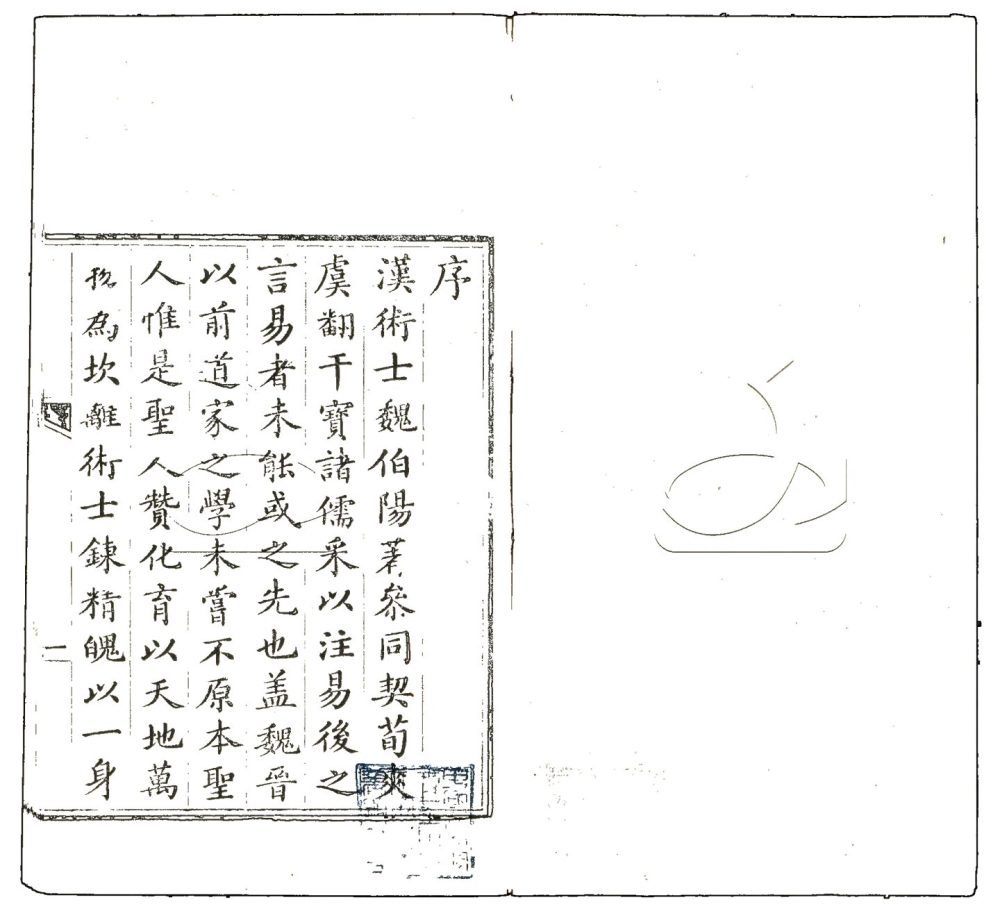 序
漢術士魏伯陽著參同契荀爽
虞翻干寶諸儒采以注易後之
言易者未能或之先也盖魏晉
以前道家之學未嘗不原本聖
人惟是聖人贊化育以天地萬
物為坎離術士鍊精魄以一身
一